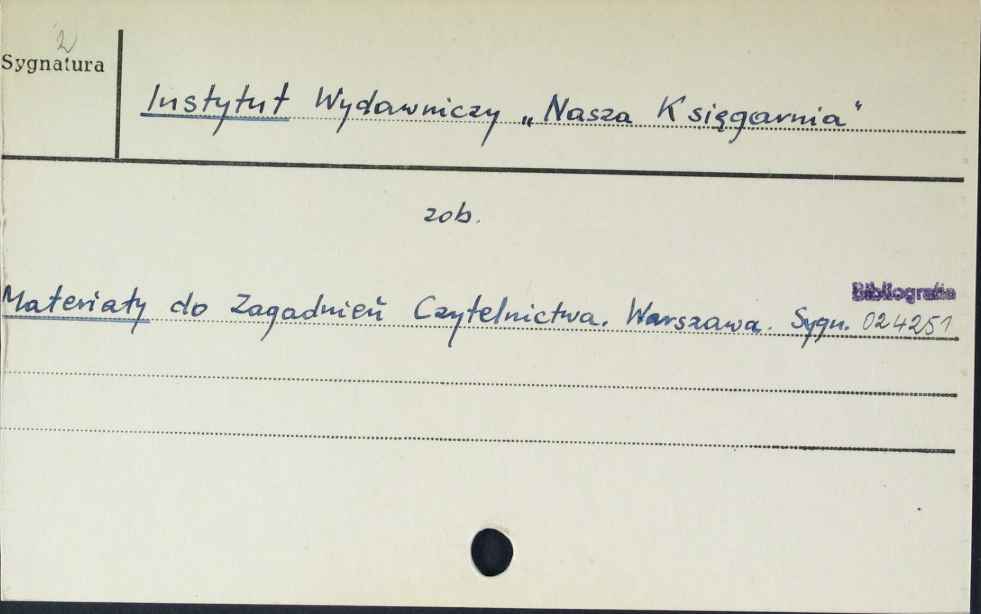 2
Sygnatura
Instytut Wydawniczy „Nasza Księgarnia"
zob.
Bibliografia
Materiały do Zagadnień Czytelnictwa. Warszawa. Sygn. 024251